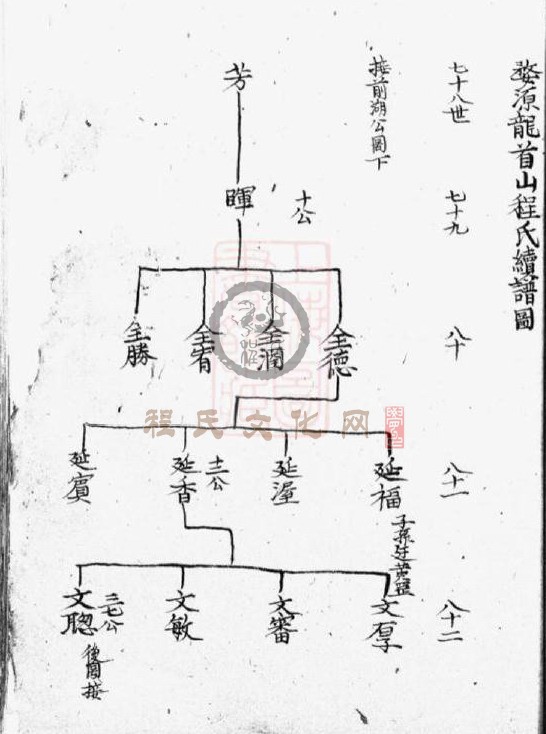 婺源龍首山程氏續譜圖
七十八世
七十九
八十
八十一
八十二
接前湖公圖下
芳
暉
十公
全德
全潤
全宥
全勝
延福
子孫迁黄墩
延渥
延香
十二公
延賓
文厚
文審
文敏
文聰
三七公
後圖接
程氏文化网